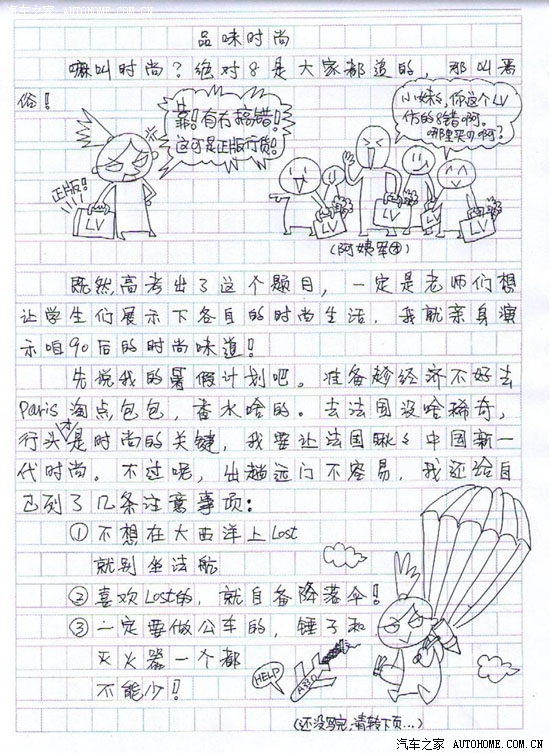 汽车之家 AUTOHOME.COM.CN
品味时尚
嘛叫时尚?绝对8是大家都追的,那叫恶
俗!
靠!有冇搞错!
这可是正版行货!
小妹,你这个LV
仿的8错啊。
哪里买的啊?
正版!
LV
LV
LV
LV
LV
(阿姨军团)
既然高考出了这个题目,一定是老师们想
让学生们展示下各自的时尚生活,我就亲身演
示咱90后的时尚味道!
先说我的暑假计划吧。准备趁经济不好去
Paris淘点包包,香水啥的。去法国没啥稀奇,
行头才是时尚的关键,我要让法国瞅瞅中国新一
代时尚。不过呢,出趟远门不容易,我还给自
己列了几条注意事项:
①不想在大西洋上Lost
就别坐法航
②喜欢Lost的,就自备降落伞!
③一定要做公车的,锤子和
灭火器一个都
不能少!
HELP
A330
(还没写完,请转下页...)
汽车之家 AUTOHOME.COM.CN